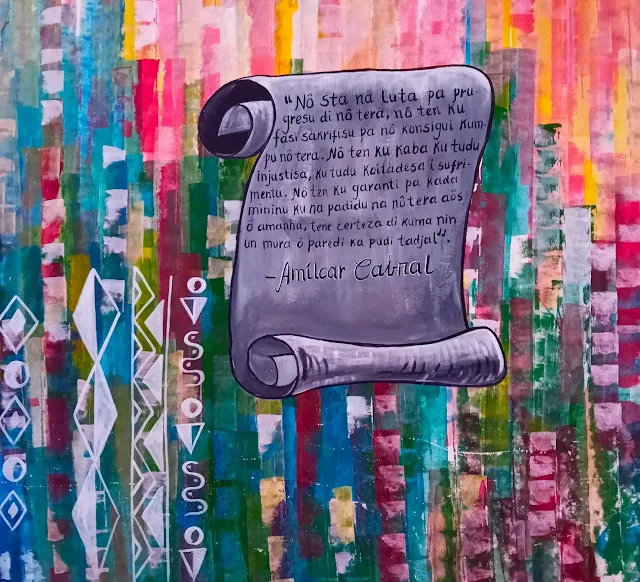 "Nô sta na luta pa pru-
gresu di nô tera, nô ten ku
fasi sakrifisu pa nô konsigui kum-
pu nô tera. Nô ten ku kaba ku tudu
injustisa, ku tudu koitadesa i sufri-
mentu. Nô ten ku garanti pa kada
mininu ku na padidu na nô tera aôs
ô amanha, tene certeza di kuma nin
un mura ô paredi ka pudi tadjal".
-Amílcar Cabral